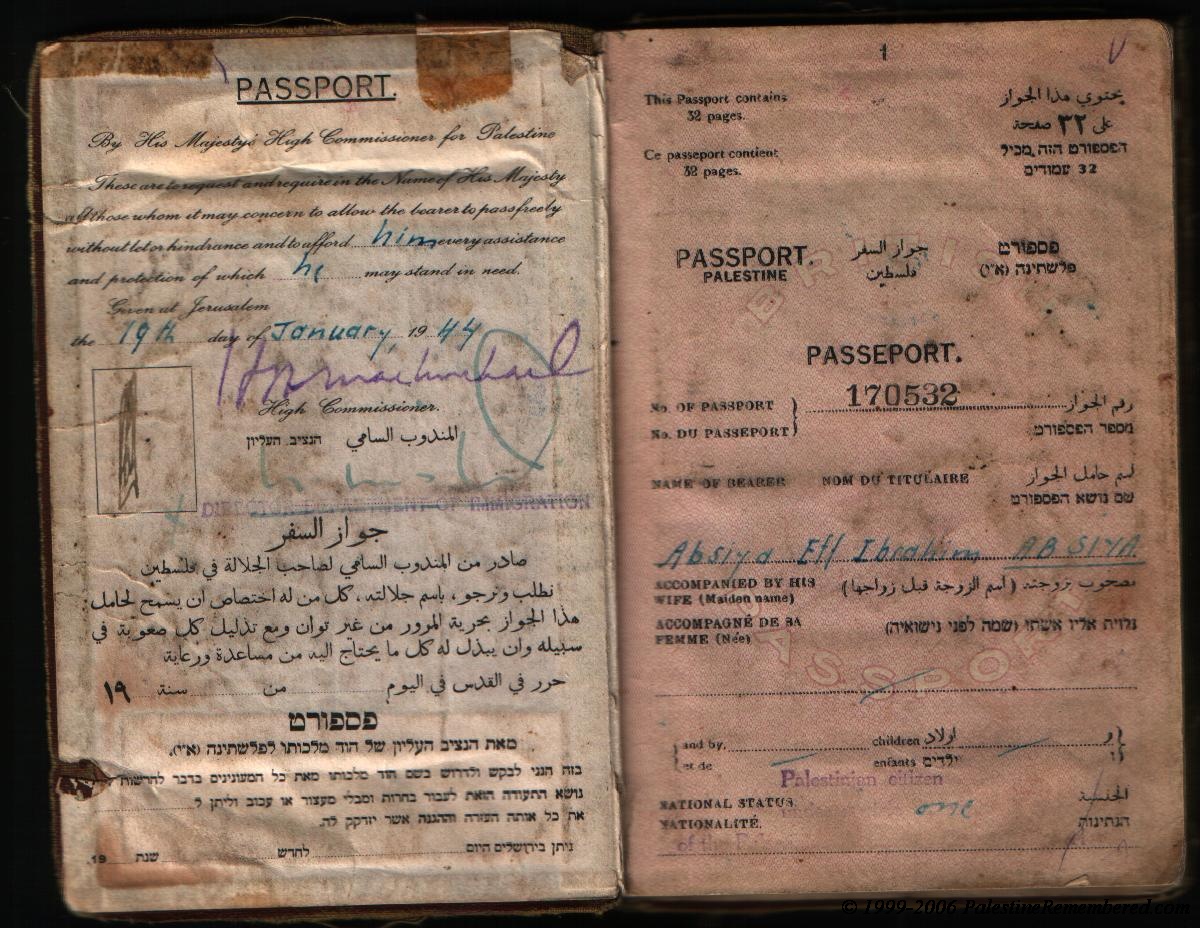 PASSPORT.
By His Majesty's High Commissioner for Palestine
These are to request and require in the Name of His Majesty
all those whom it may concern to allow the bearer to pass freely
without let or hindrance and to afford him every assistance
and protection of which he may stand in need.
Given at Jerusalem
the 19th day of January, 1944
High Commissioner.
הנציב העליון المندوب السامي
DIRECTOR DEPARTMENT OF IMMIGRATION
جواز السفر
صادر من المندوب السامي لصاحب الجلالة في فلسطين
نطلب ونرجو، باسم جلالته، كل من له اختصاص ان يسمح لحامل
هذا الجواز بحرية المرور من غير توان ومع تذليل كل صعوبة في
سبيله وان يبذل له كل ما يحتاج اليه من مساعدة ورعاية
حرر في القدس في اليوم من سنة ١٩
פספורט
מאת הנציב העליון של הוד מלכותו לפלשתינה (א״י).
בזה הנני לבקש ולדרוש בשם הוד מלכותו מאת כל המעונינים בדבר להרשות
נושא התעודה הזאת לעבור בחרות ומבלי מעצור או עכוב וליתן ל
את כל אותה העזרה וההגנה אשר יזדקק לה.
ניתן בירושלים היום לחדש שנת 19.
1
This Passport contains
32 pages.
يحتوي هذا الجواز
على ٣٢ صفحة
Ce passeport contient
32 pages.
הפספורט הזה מכיל
32 עמודים
PASSPORT. جواز السفر פספורט
PALESTINE فلسطين פלשתינה (א״י)
BRITISH
PASSEPORT.
No. OF PASSPORT 170532 رقم الجواز
No. DU PASSEPORT מספר הפספורט
NAME OF BEARER NOM DU TITULAIRE اسم حامل الجواز
שם נושא הפספורט
Absiya Eff Ibrahim ABSIYA
ACCOMPANIED BY HIS
WIFE (Maiden name)
مصحوب بزوجته (اسم الزوجة قبل زواجها)
ACCOMPAGNÉ DE SA
FEMME (Née)
נלוית אליו אשתו (שמה לפני נישואיה)
PASSPORT
and by, children اولاد و
et de enfants ילדים ו
Palestinian citizen
NATIONAL STATUS. one الجنسية
NATIONALITÉ. הנתינות
of the
© 1999-2006 PalestineRemembered.com